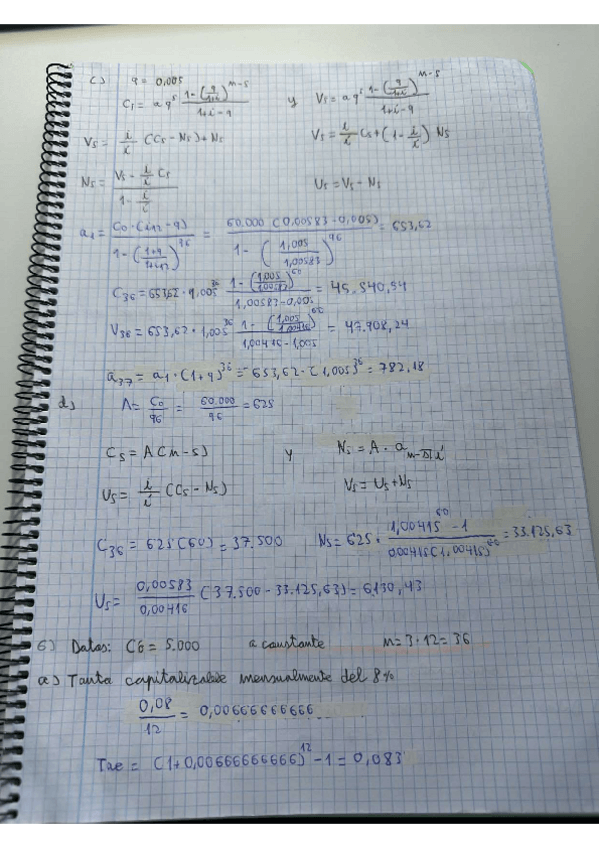 c) q = 0,005
C₁ = a qˢ (1-(q/1+i)^(n-s))/(1+i-q) y Vs = a qˢ (1-(q/1+i)^(n-s))/(1+i-q)
Vs = i/i' (Cs - Ns) + Ns Vs = i/i' Cs + (1 - i/i') Ns
Ns = (Vs - i/i' Cs)/(1 - i/i') Us = Vs - Ns
a₁ = (C₀·(i₁₂-q))/(1-((1+q)/(1+i₁₂))^96) = (60.000 (0,00583-0,005))/(1-(1,005/1,00583)^96) = 653,62
C36 = 653,62 · 1,005^36 (1-(1,005/1,00583)^60)/(1,00583-0,005) = 45.540,94
V36 = 653,62 · 1,005^36 (1-(1,005/1,00416)^60)/(1,00416-1,005) = 47.908,24
a37 = a₁ · (1+q)^36 = 653,62 · (1,005)^36 = 782,18
d) A = C₀/96 = 60.000/96 = 625
Cs = A(n-s) y Ns = A · a n-s i'
Us = i/i' (Cs - Ns) Vs = Us + Ns
C36 = 625 (60) = 37.500 Ns = 625 · (1,00415^60 - 1)/(0,00415(1,00415)^60) = 33.125,63
Us = 0,00583/0,00416 (37.500 - 33.125,63) = 6130,43
6) Datos: C6 = 5.000 a constante n = 3·12 = 36
a) Tanto capitalizable mensualmente del 8%
0,08/12 = 0,00666666666
Tae = (1+0,00666666666)^12 - 1 = 0,083